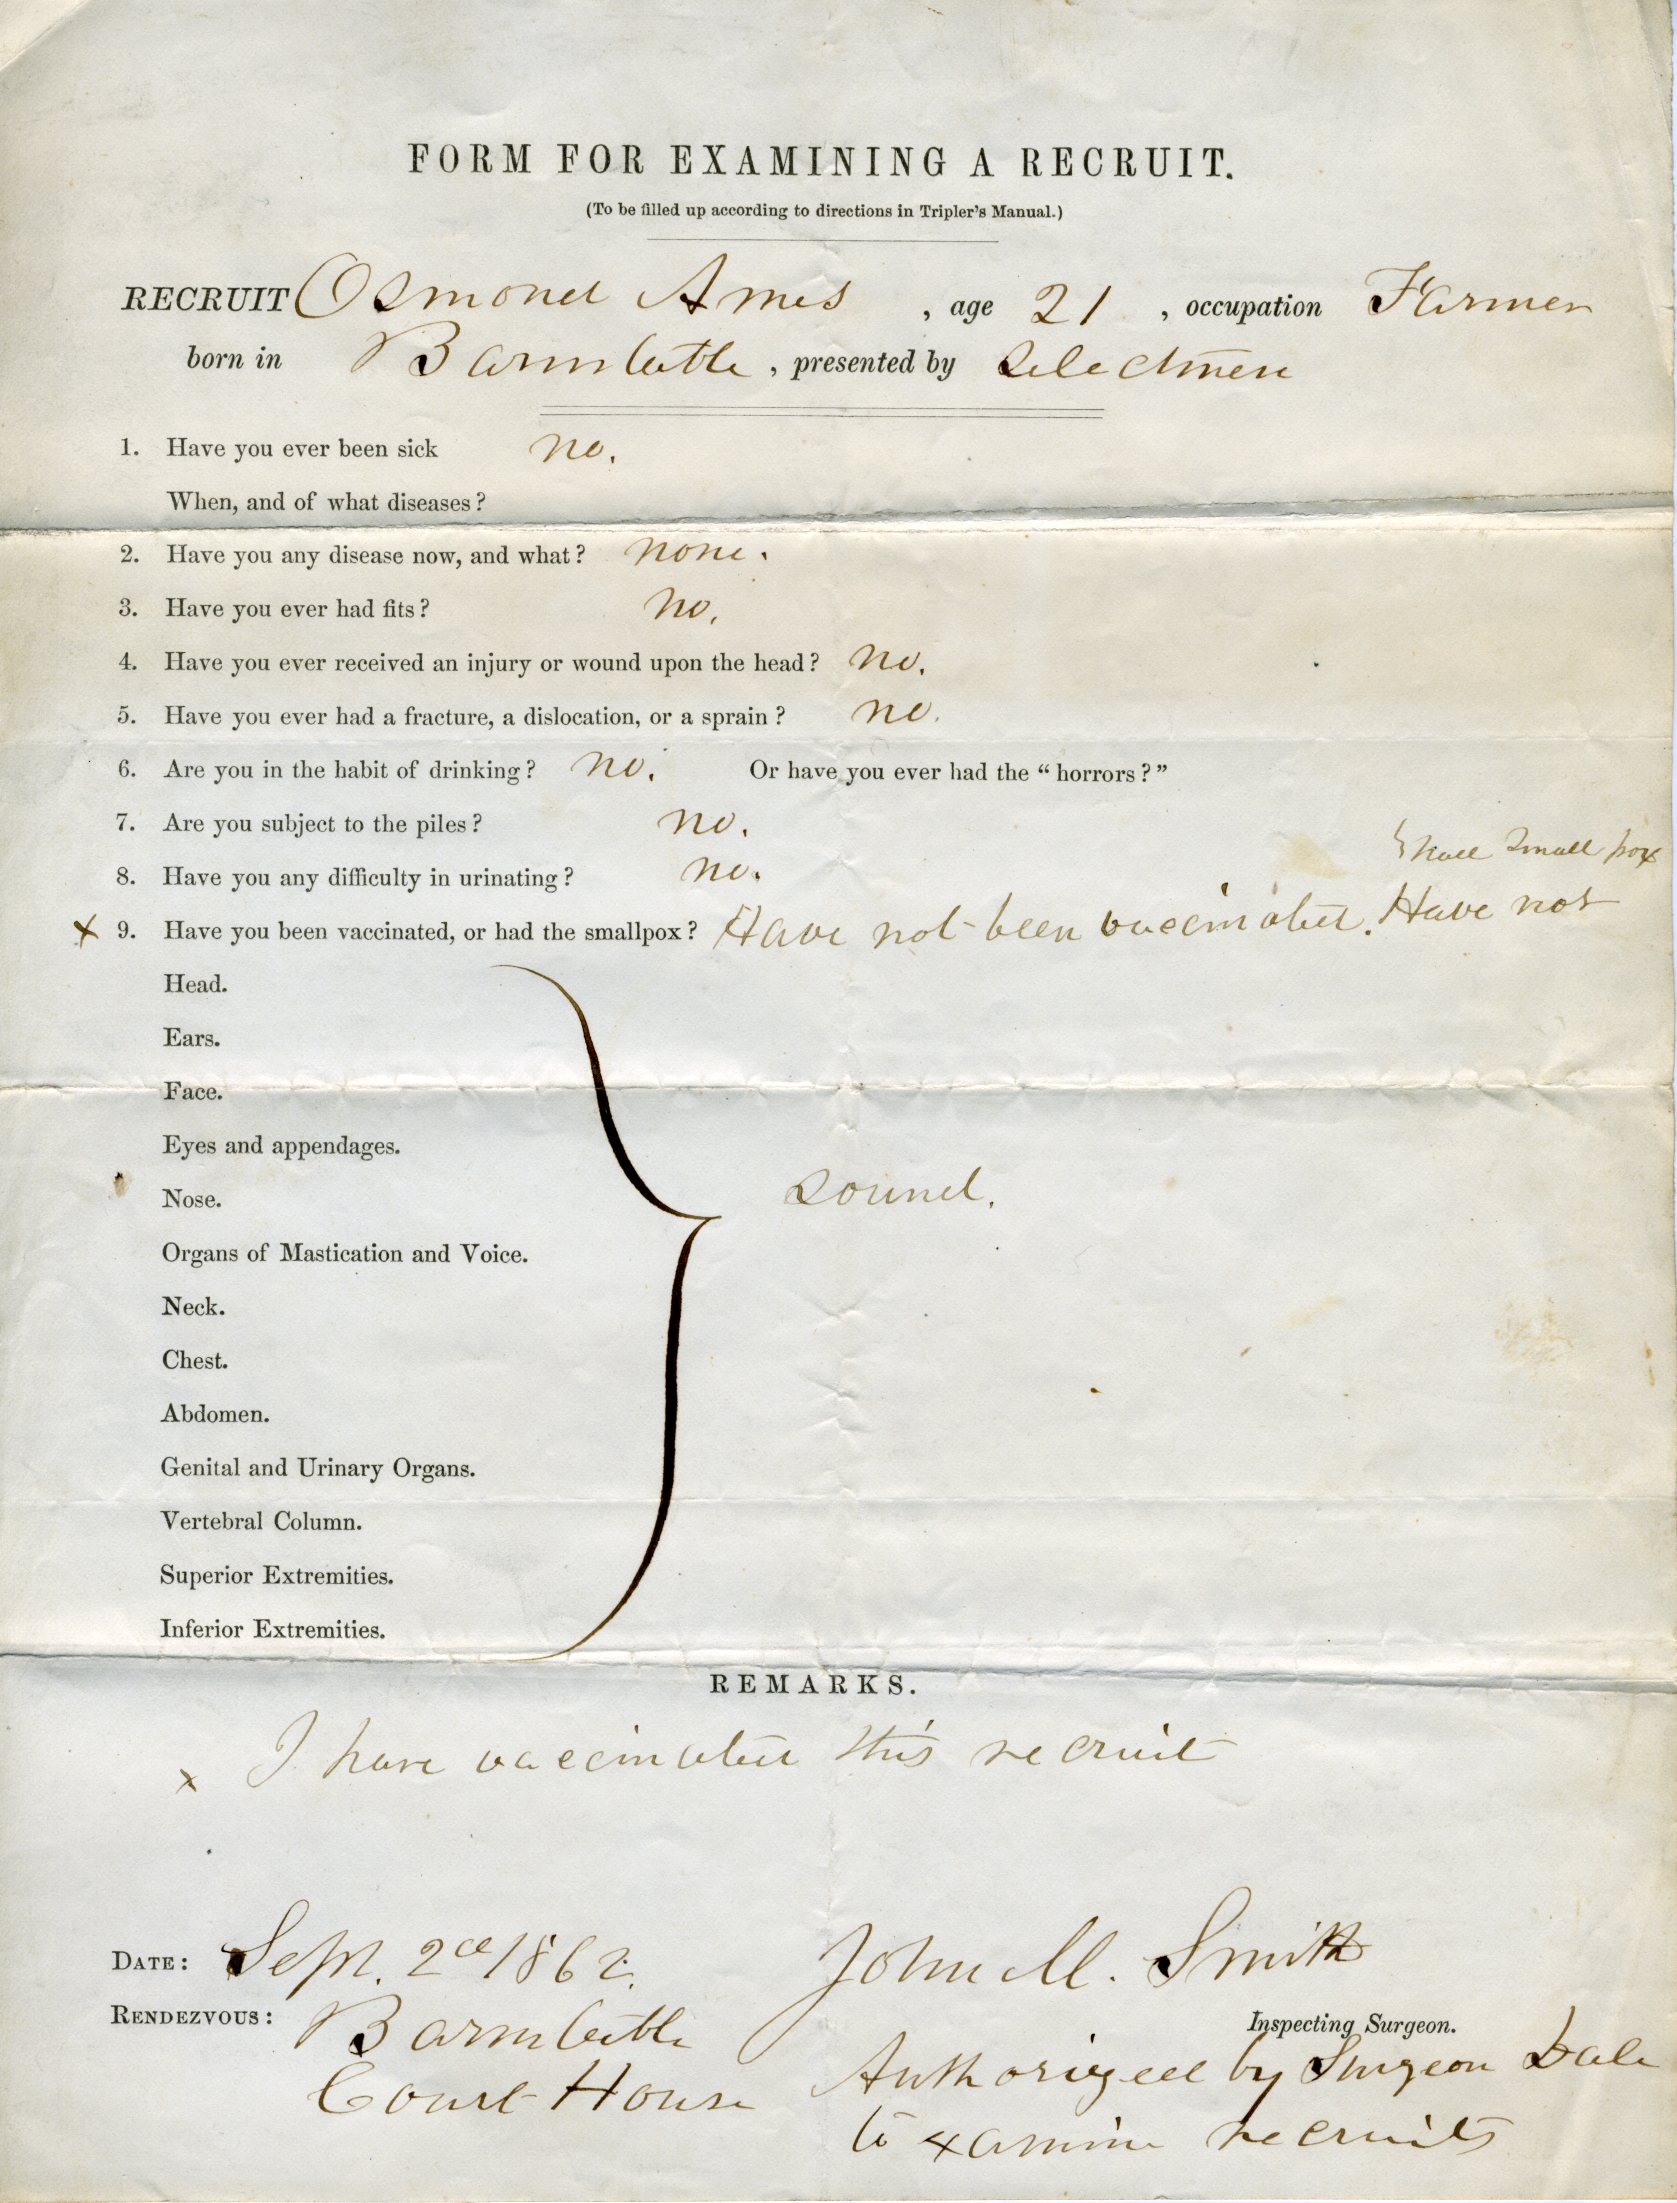 FORM FOR EXAMINING A RECRUIT.
(To be filled up according to directions in Tripler's Manual.)
RECRUIT Osmond Ames , age 21 , occupation Farmer
born in Barnstable , presented by Selectmen
1. Have you ever been sick no.
When, and of what diseases?
2. Have you any disease now, and what? none.
3. Have you ever had fits? no.
4. Have you ever received an injury or wound upon the head? no.
5. Have you ever had a fracture, a dislocation, or a sprain? no.
6. Are you in the habit of drinking? no. Or have you ever had the "horrors?"
7. Are you subject to the piles? no.
8. Have you any difficulty in urinating? no.
x 9. Have you been vaccinated, or had the smallpox? Have not been vaccinated. Have not
had Small pox
Head.
Ears.
Face.
Eyes and appendages.
Nose. Sound.
Organs of Mastication and Voice.
Neck.
Chest.
Abdomen.
Genital and Urinary Organs.
Vertebral Column.
Superior Extremities.
Inferior Extremities.
REMARKS.
x I have vaccinated this recruit
DATE: Sept. 2d 1862. John M. Smith
RENDEZVOUS: Barnstable Inspecting Surgeon.
Court House Authorized by Surgeon Dale
to examine recruits